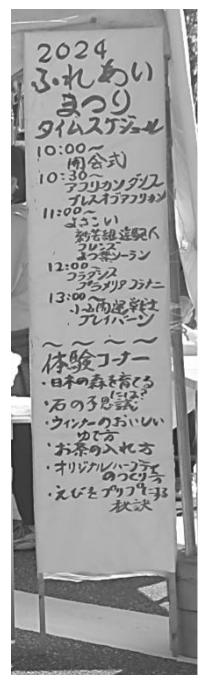 2024
ふれあい
まつり
タイムスケジュール
10:00〜
開会式
10:30〜
アフリカンダンス
ブレスオブアフリカン
11:00〜
よさこい
フレンズ
よつ葉ソーラン
12:00〜
フラダンス
プラメリアフラナニ
13:00〜
プレイバーン
〜〜〜〜〜〜
体験コーナー
・日本の森を育てる
には?
・石の予思議
・ウィンナーのおいしい
ゆで方
・お茶の入れ方
・オリジナルハーブティ
のつくり方
・えびをプリプリにする
秘訣